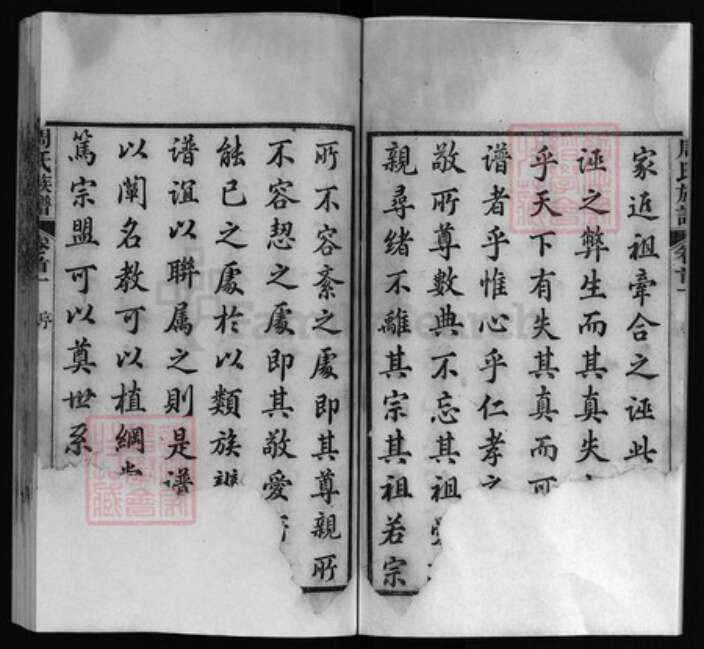 周氏族譜 卷首一
家近祖牽合之誣此
誣之弊生而其真失
乎天下有失其真而可
譜者乎惟心乎仁孝之
敬所尊數典不忘其祖愛
親尋緒不離其宗其祖若宗
所不容紊之處即其尊親所
不容恝之處即其敬愛所
能已之處於以類族辨
譜誼以聯属之則是譜
以闡名教可以植綱常
篤宗盟可以奠世系
周氏族譜 卷首一 序
FamilySearch